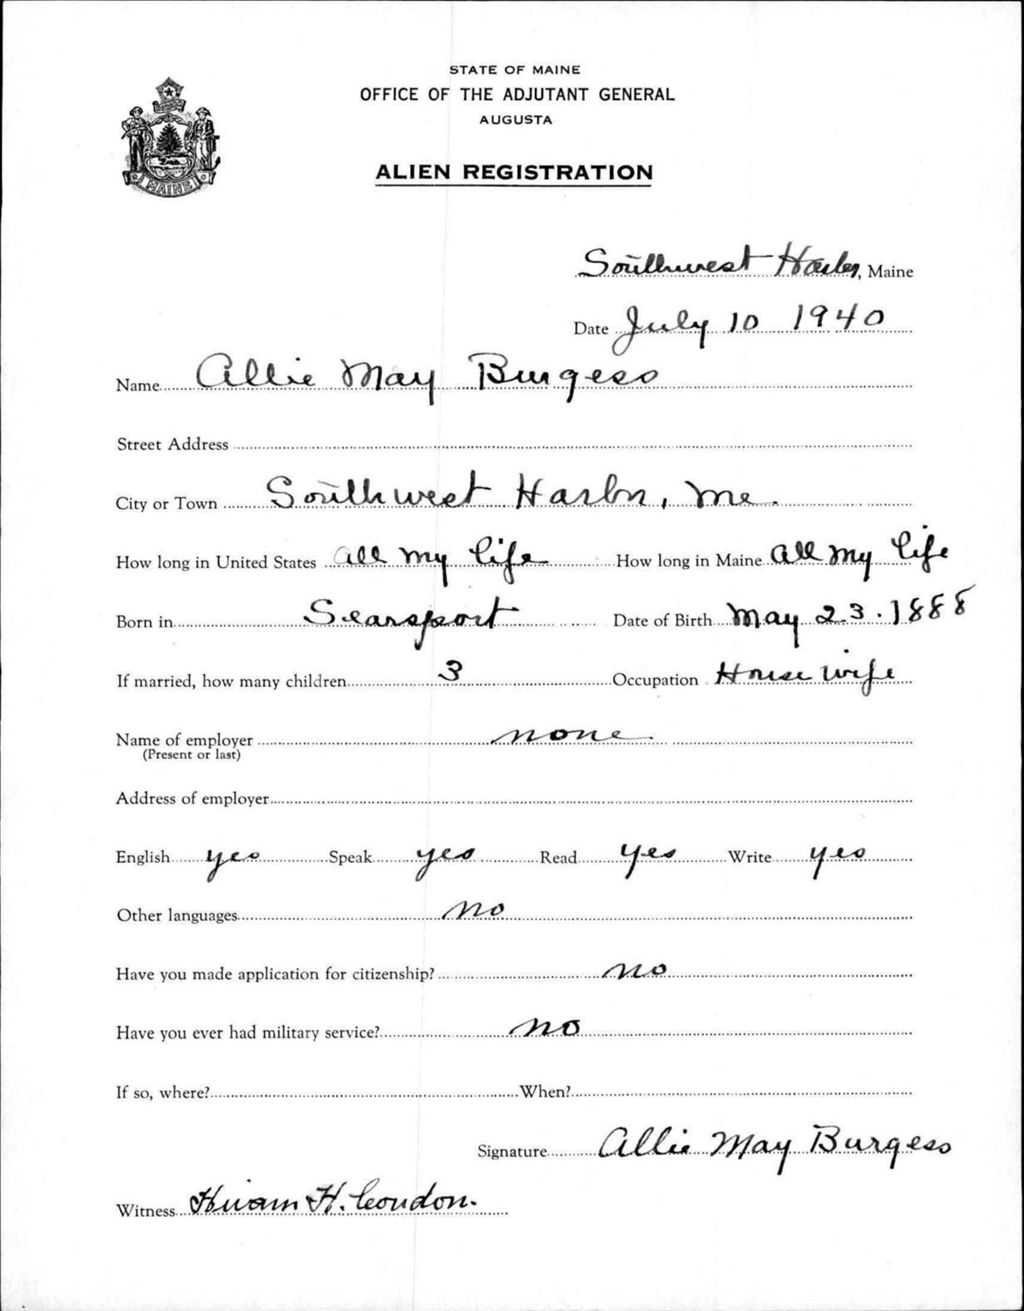 STATE OF MAINE
OFFICE OF THE ADJUTANT GENERAL
AUGUSTA
ALIEN REGISTRATION
MAINE
Southwest Harbor, Maine
Date July 10 1940
Name Allie May Burgess
Street Address
City or Town Southwest Harbor, Me.
How long in United States all my life How long in Maine all my life
Born in Searsport Date of Birth May 23. 1888
If married, how many children 3 Occupation House wife
Name of employer none
(Present or last)
Address of employer
English yes Speak yes Read yes Write yes
Other languages no
Have you made application for citizenship? no
Have you ever had military service? no
If so, where? When?
Signature Allie May Burgess
Witness Hiram H. Condon.